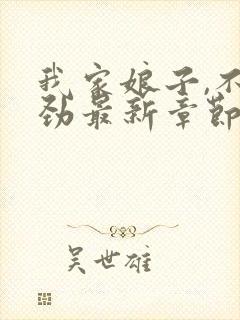 我家娘子,不
劲最新章節
吴世雄